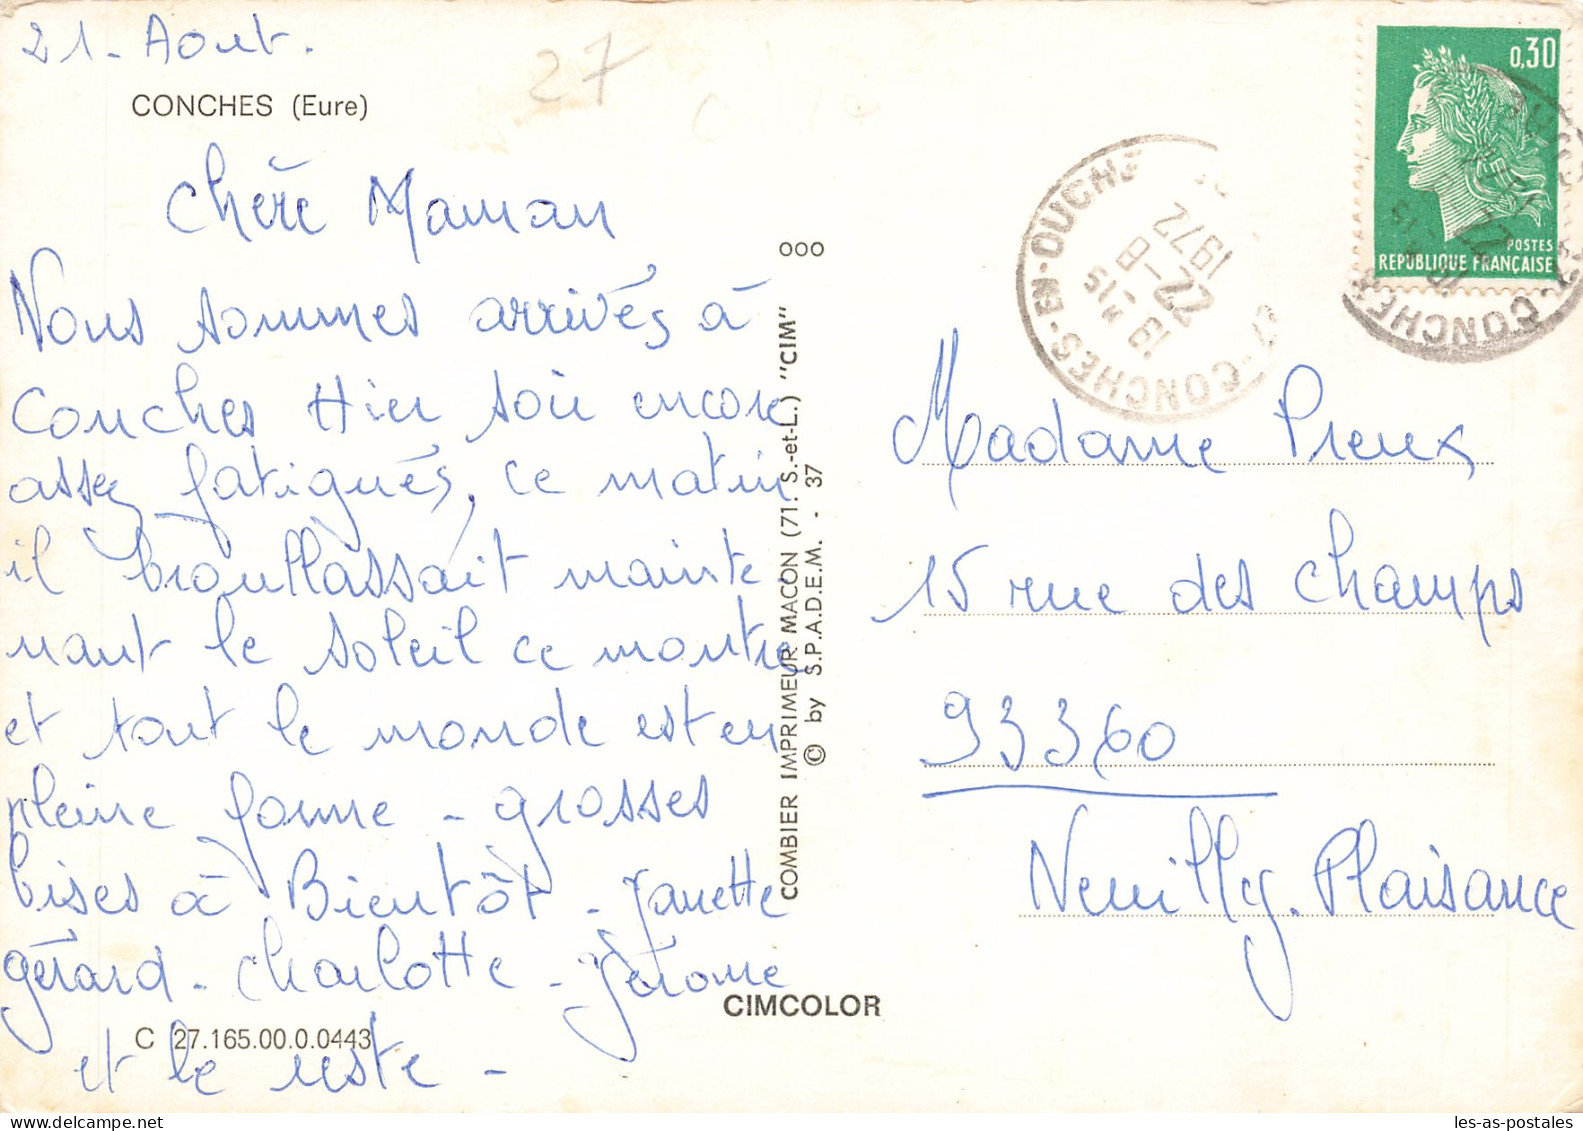 21 - Aout.
27
CONCHES (Eure)
Chère Maman
Nous sommes arrivés à
Conches Hier soir encore
assez fatigués, ce matin
il brouillassait mainte
nant le soleil ce montre
et tout le monde est en
pleine forme - grosses
bises à Bientôt - Janette
gérard - Charlotte - Jérome
et le reste -
C 27.165.00.0.0443
ooo
COMBIER IMPRIMEUR MACON (71. S.-et-L.) "CIM"
© by S.P.A.D.E.M. - 37
CIMCOLOR
0,30
POSTES
REPUBLIQUE FRANÇAISE
CONCHES-EN-OUCHE
18 H 15
22-8
1972
Madame Preux
15 rue des Champs
93360
Neuilly-Plaisance
les-as-postales